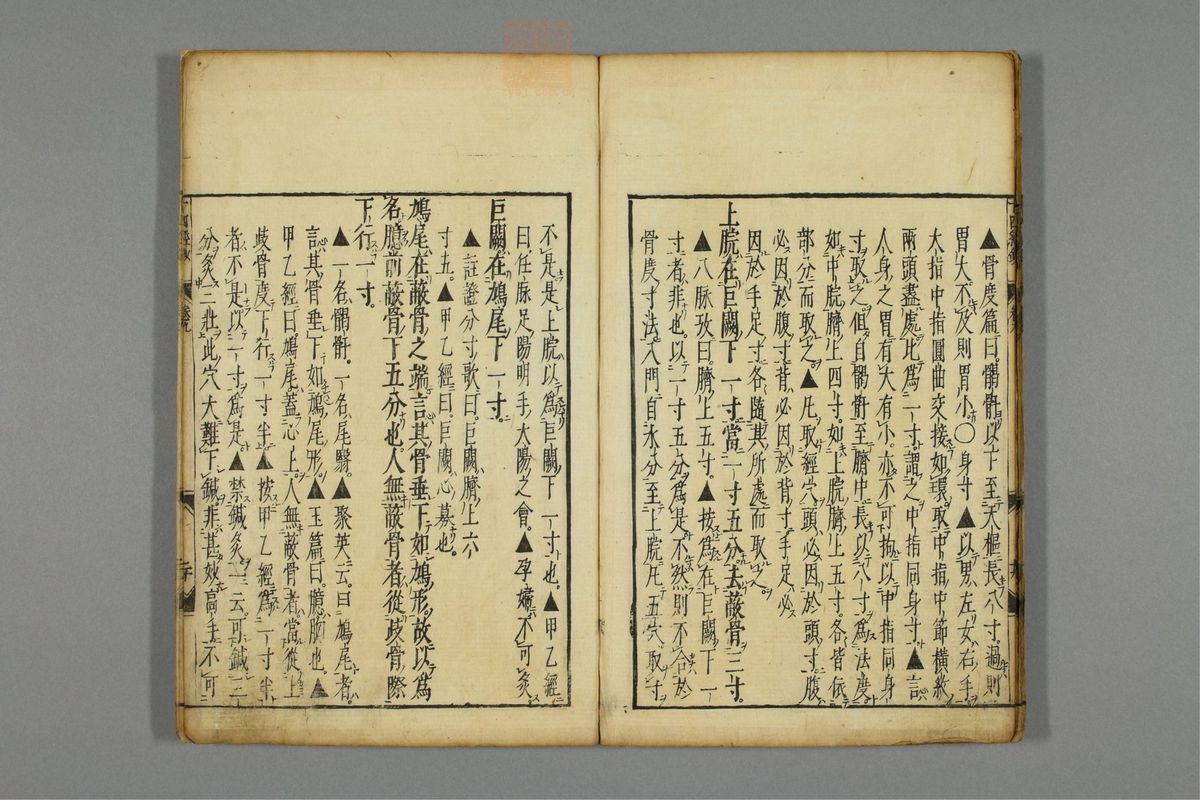 ▲骨度篇曰。𩩲骬以下至天樞長八寸過則
胃大不及則胃小〇身寸▲以男左女右手
大指中指圓曲交接如環取中指中節橫紋
兩頭盡處比為一寸謂之中指同身寸▲言
人身之胃有大有小亦不可拘以中指同身
寸取之但自𩩲骬至臍中長以八寸為法度
如中脘臍上四寸。如上脘臍上五寸。各皆依
部分而取之▲凡取經穴頭必因於頭寸腹
必因於腹寸背必因於背寸手足必
因於手足寸各隨其所處而取之
上脘在巨闕下一寸當一寸五分去蔽骨三寸。
▲八脉攷曰。臍上五寸。▲按為在巨闕下一
寸者非也。以一寸五分為是不然則不合於
骨度寸法。入門自水分至上脘凡五穴取寸
不是是上脘以為巨闕下一寸也。▲甲乙經
曰任脉足陽明手太陽之會。▲孕婦不可灸
巨闕在鳩尾下一寸。
▲註證分寸歌曰。巨闕臍上六
寸五。▲甲乙經曰。巨闕心募也。
鳩尾在蔽骨之端言其骨垂下如鳩形。故以為
名臆前蔽骨下五分也。人無蔽骨者從歧骨際
下行一寸。
▲一名𩩲骬。一名尾翳。▲聚英云。曰鳩尾者。
言其骨垂下如鳩尾形。▲玉篇曰。臆胸也。▲
甲乙經曰。鳩尾蓋心上。人無蔽骨者當從上
歧骨度下行一寸半▲按甲乙經為一寸半
者不是以一寸為是▲禁鍼灸一云可鍼三
分灸三壯此穴大難下鍼非甚妙高手不可